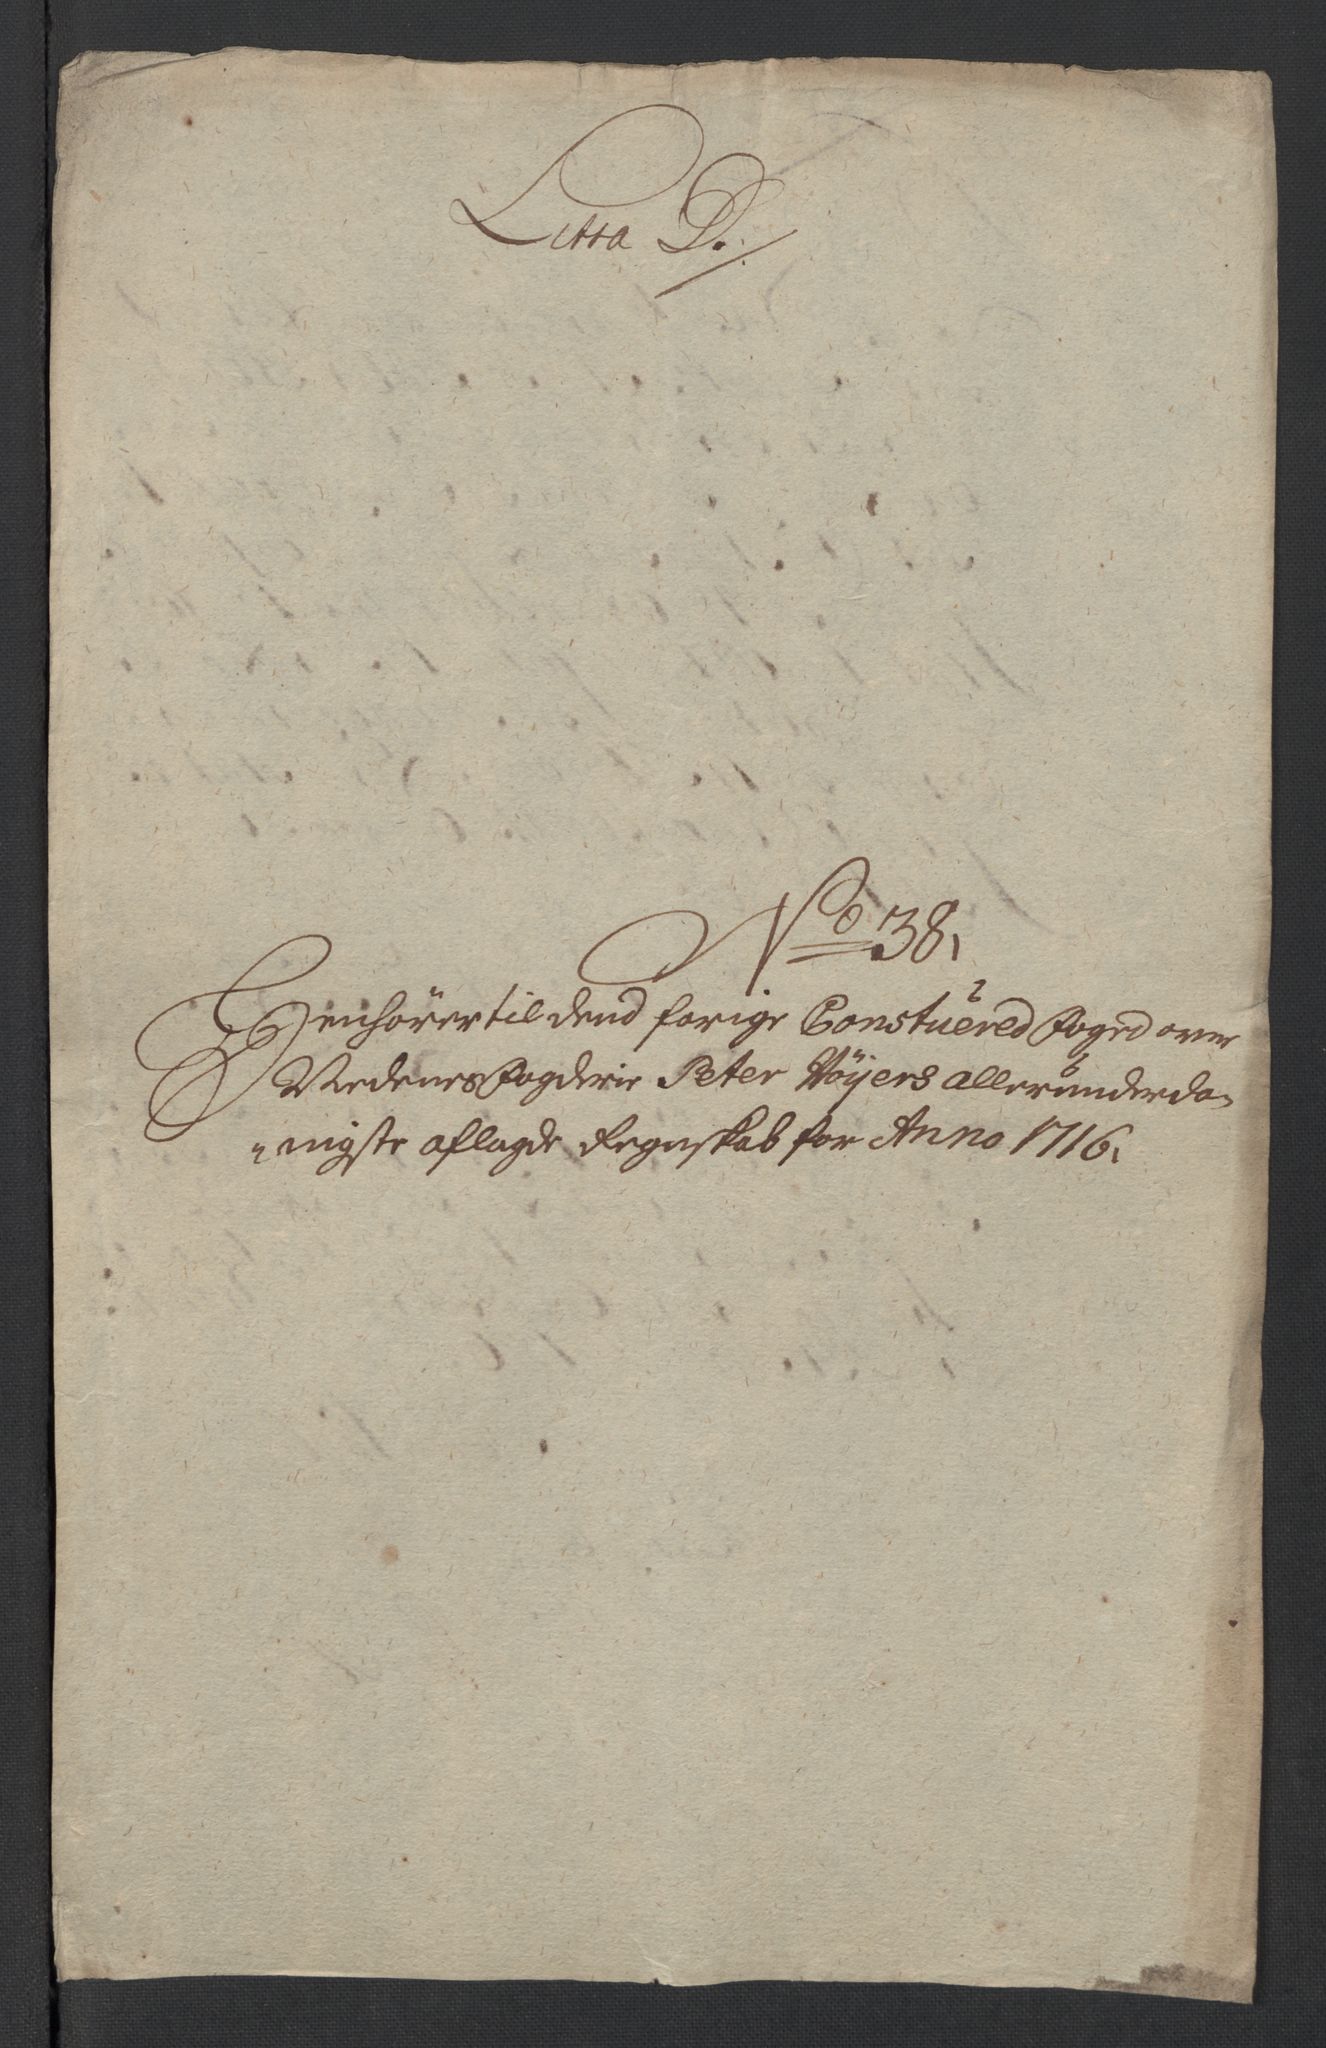 Littra D.
No 38.
Henhører til dend forige Constuered Foged over
Nedenes Fogderie Peter Wøyers allerunderda-
nigste aflagde Regnskab for Anno 1716.